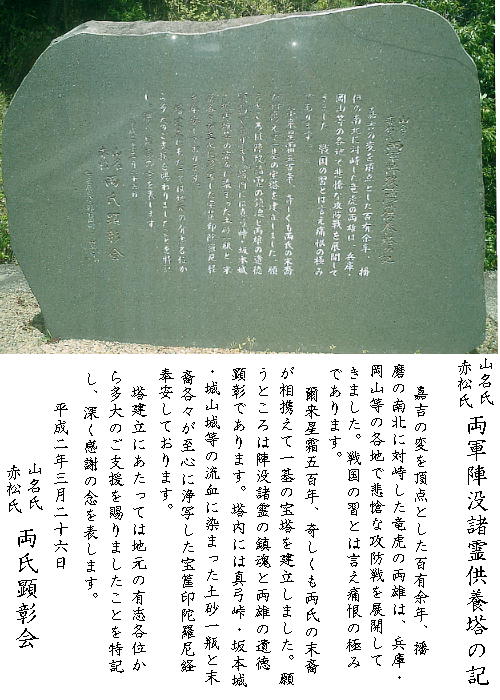 山名氏
赤松氏 両軍陣没諸霊供養塔の記
嘉吉の変を頂点とした百有余年、播
磨の南北に対峙した竜虎の両雄は、兵庫・
岡山等の各地で悲愴な攻防戦を展開して
きました。戦国の習とは言え痛恨の極み
であります。
爾来星霜五百年、奇しくも両氏の末裔
が相携えて一基の宝塔を建立しました。願
うところは陣没諸霊の鎮魂と両雄の道徳
顕彰であります。塔内には真弓峠・坂本城
・城山城等の流血に染まった土砂一瓶と末
裔各々が至心に浄写した宝筐印陀羅尼経
奉安しております。
塔建立にあたっては地元の有志各位か
ら多大のご支援を賜りましたことを特記
し、深く感謝の念を表します。
平成二年三月二十六日
山名氏
赤松氏 両氏顕彰会